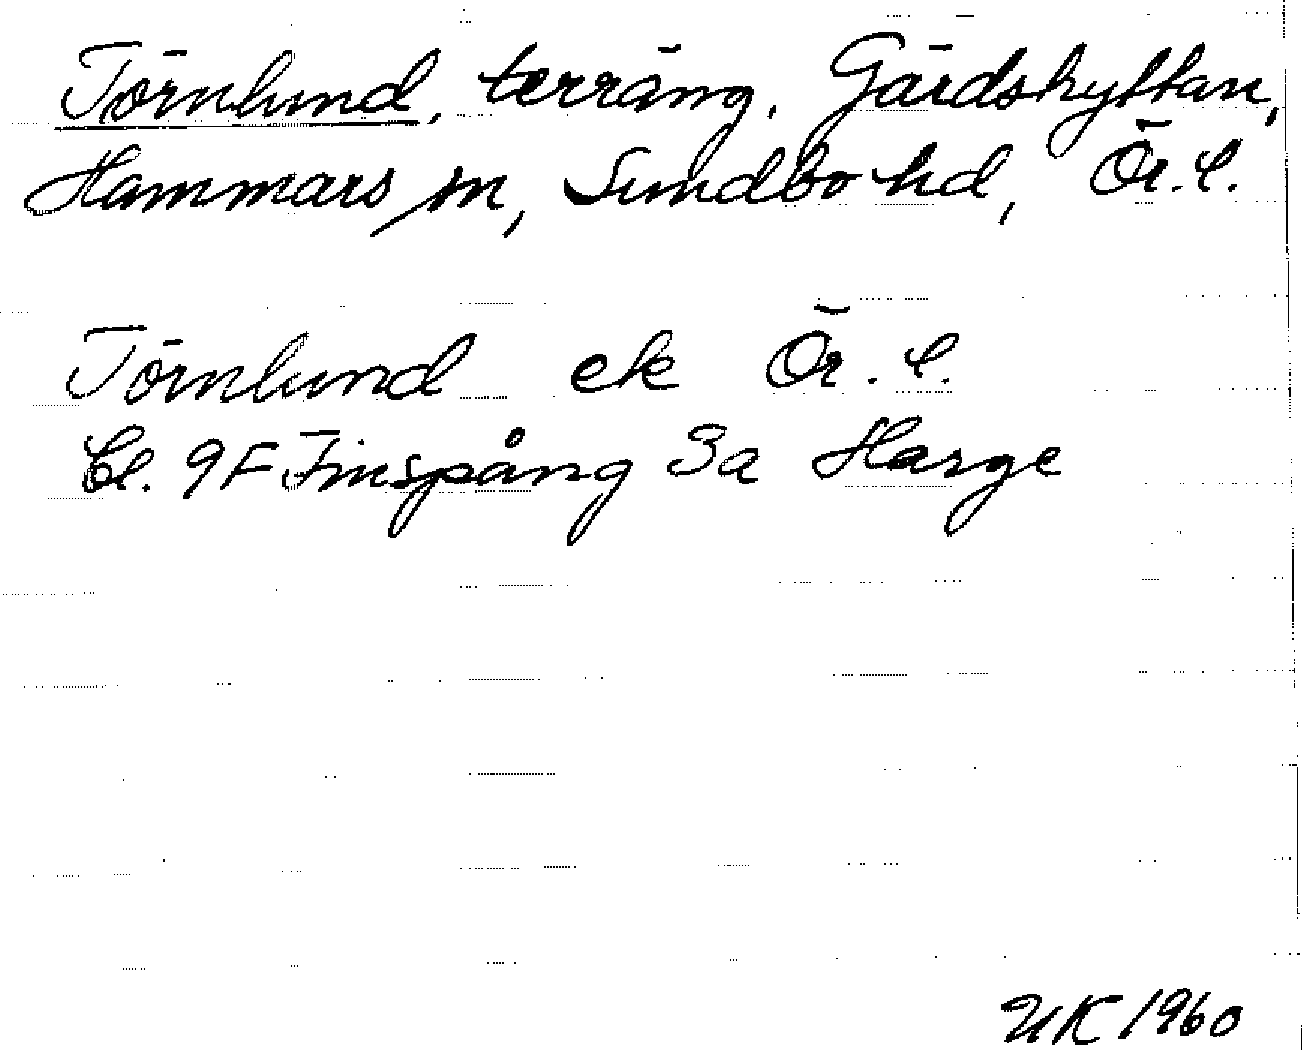 Törnlund, terräng, Gärdshyttan,
Hammars sn, Sundbo hd, Ör. l.
Törnlund ek Ör. l.
bl. 9F Finspång 3a Harge
UK 1960